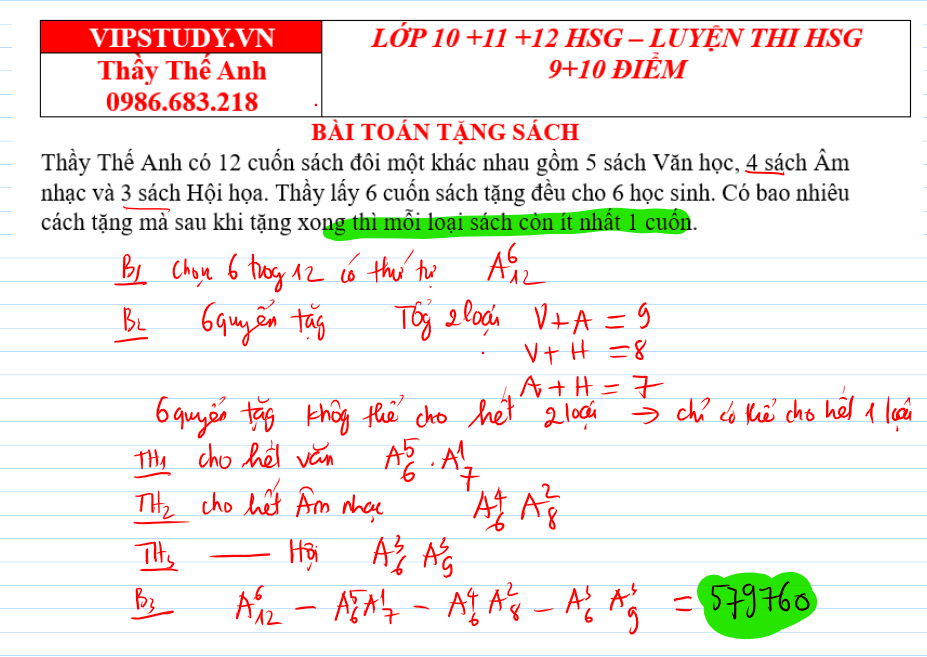 VIPSTUDY.VN
Thầy Thế Anh
0986.683.218
LỚP 10 +11 +12 HSG – LUYỆN THI HSG
9+10 ĐIỂM
BÀI TOÁN TẶNG SÁCH
Thầy Thế Anh có 12 cuốn sách đôi một khác nhau gồm 5 sách Văn học, 4 sách Âm
nhạc và 3 sách Hội họa. Thầy lấy 6 cuốn sách tặng đều cho 6 học sinh. Có bao nhiêu
cách tặng mà sau khi tặng xong thì mỗi loại sách còn ít nhất 1 cuốn.
B1 chọn 6 trog 12 có thứ tự A_{12}^{6}
B2 6 quyển tặg Tổg 2 loại V+A = 9
V+H = 8
A+H = 7
6 quyển tặg khôg thể cho hết 2 loại → chỉ có thể cho hết 1 loại
TH1 cho hết văn A_{6}^{5} . A_{7}^{1}
TH2 cho hết Âm nhạc A_{6}^{4} A_{8}^{2}
TH3 —— Hội A_{6}^{3} A_{9}^{3}
B3 A_{12}^{6} − A_{6}^{5} A_{7}^{1} − A_{6}^{4} A_{8}^{2} − A_{6}^{3} A_{9}^{3} = 579760